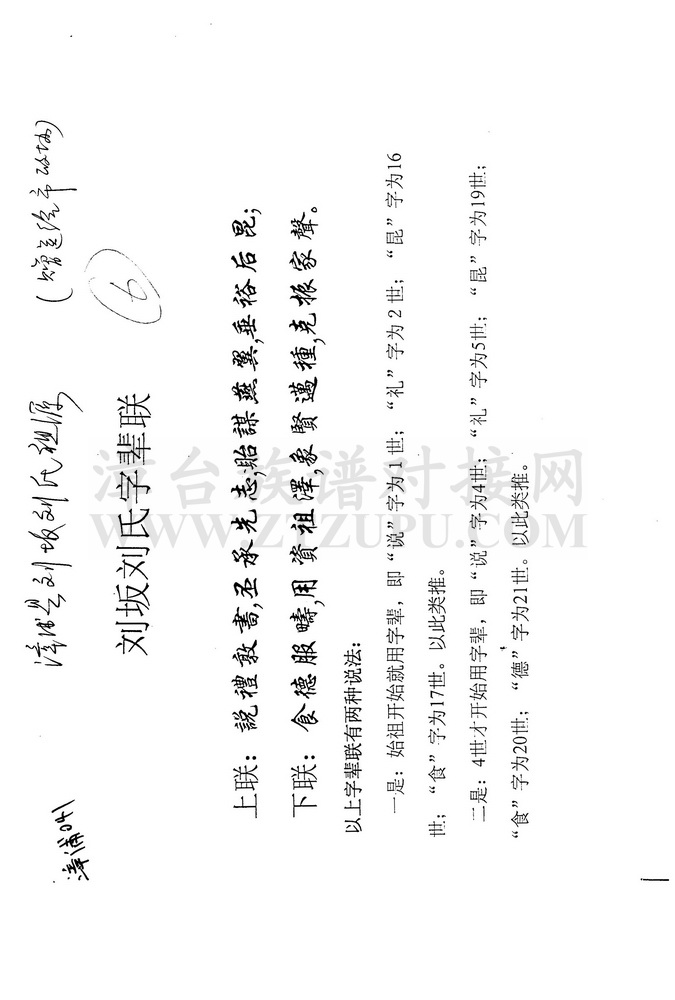 漳浦041
漳浦县刘坂刘氏祖源
⑥
刘坂刘氏字辈联
上联：說禮敦書,丕承先志,貽謀燕翼,垂裕后昆；
下联：食德服疇,用資祖澤,象賢邁種,克振家聲。
以上字辈联有两种说法：
一是：始祖开始就用字辈，即“说”字为1世；“礼”字为2世；“昆”字为16
世；“食”字为17世。以此类推。
二是：4世才开始用字辈，即“说”字为4世；“礼”字为5世；“昆”字为19世；
“食”字为20世；“德”字为21世。以此类推。
漳台族谱对接网
WWW.ZTZUPU.COM